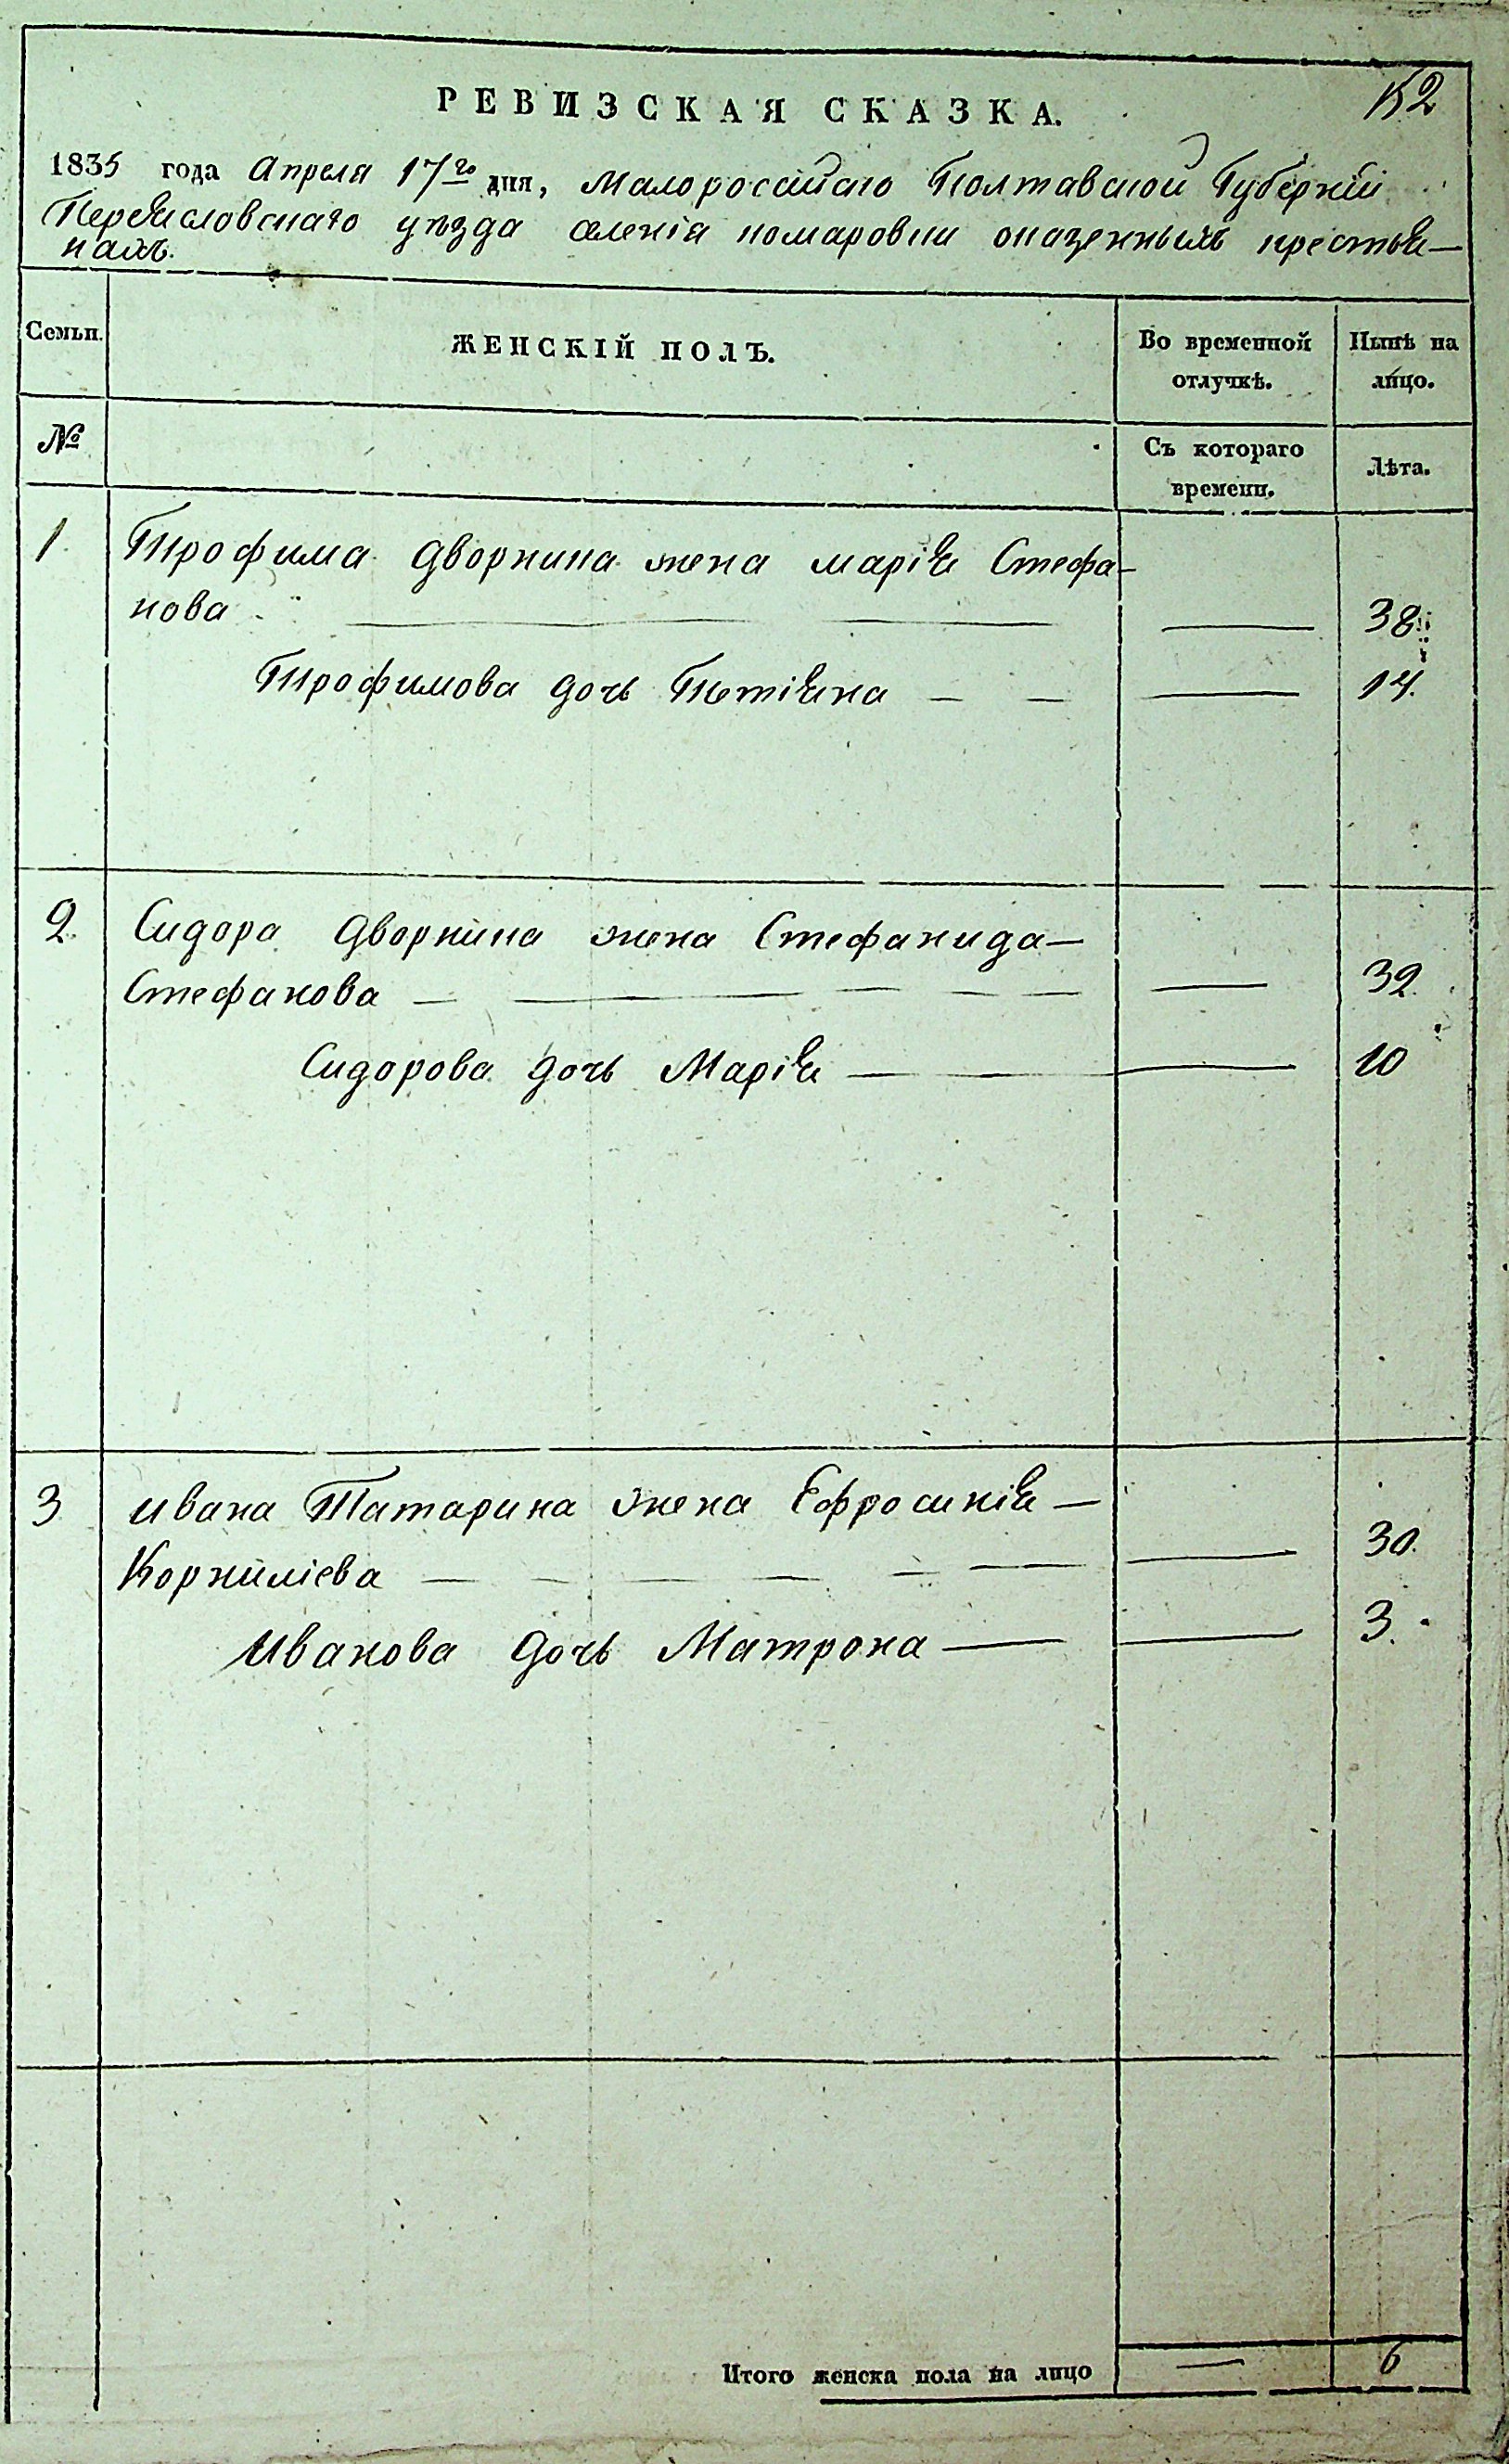 152
РЕВИЗСКАЯ СКАЗКА.
1835 года Апреля 17го дня, Малоросійскаго Полтавской Губерніи
Переясловскаго уѣзда селенія комаровки о казенныхъ крестья-
нахъ.
Семьи. ЖЕНСКІЙ ПОЛЪ. Во временной отлучкѣ. Нынѣ на лицо.
№ Съ котораго времени. Лѣта.
1. Трофима дворкина жена марія Стефа-
нова 38
Трофимова дочь Тетіяна 14.
2. Сидора дворкина жена Стефанида
Стефанова 32
Сидорова дочь Марія 10
3 ивана Татарина жена Ефросинія
Корниліева 30
Иванова дочь Матрона 3.
Итого женска пола на лицо — 6